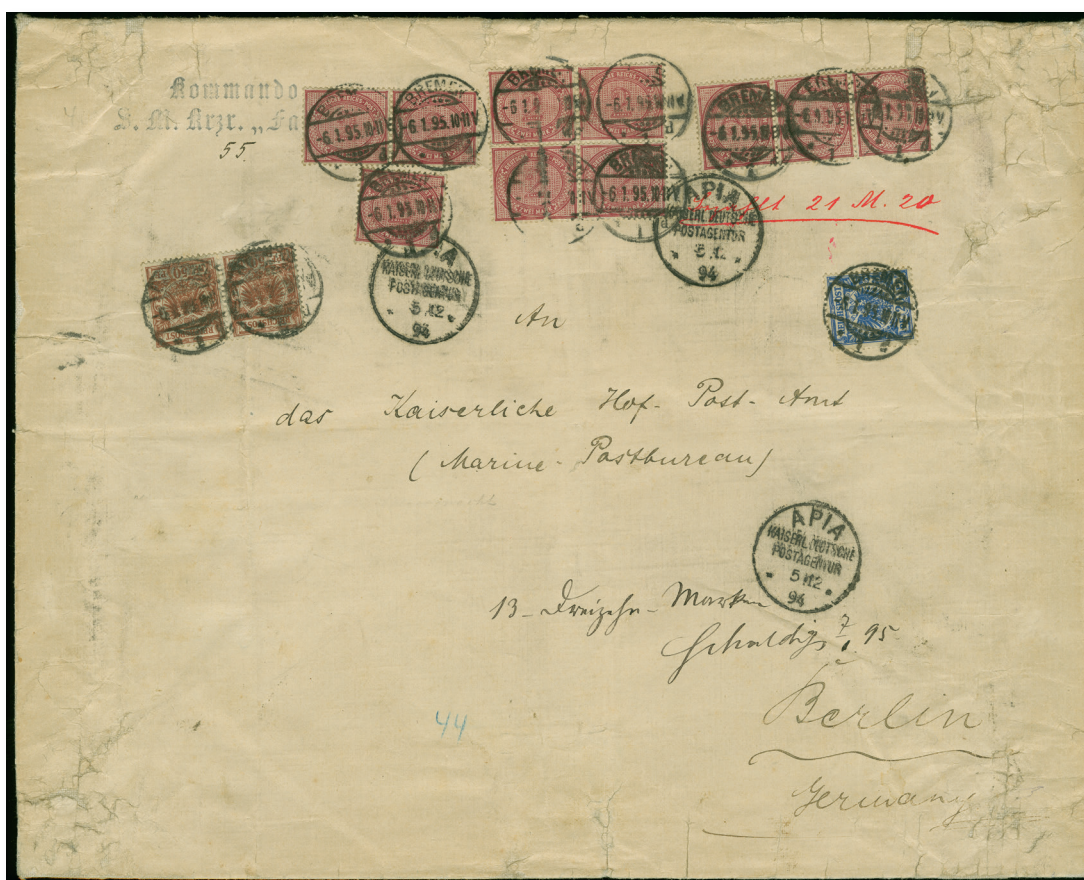 Kommando
S. M. Krzr. „Fa
55.
BREMEN
-6.1.95.10-11V
1
BREMEN
-6.1.95.10-11V
BREMEN
-6.1.95.10-11V
BREMEN
-6.1.95.10-11V
BREMEN
-6.1.95.10-11V
1
21 M. 20
APIA
KAISERL. DEUTSCHE
POSTAGENTUR
5 12
94
KAISERL. DEUTSCHE
POSTAGENTUR
5 12
94
BREMEN
1
An
das Kaiserliche Hof-Post-Amt
(Marine-Postbureau)
APIA
KAISERL. DEUTSCHE
POSTAGENTUR
5 12
94
13 - Dreizehn - Marken
Schuldig 7/1 95
44
Berlin
Germany